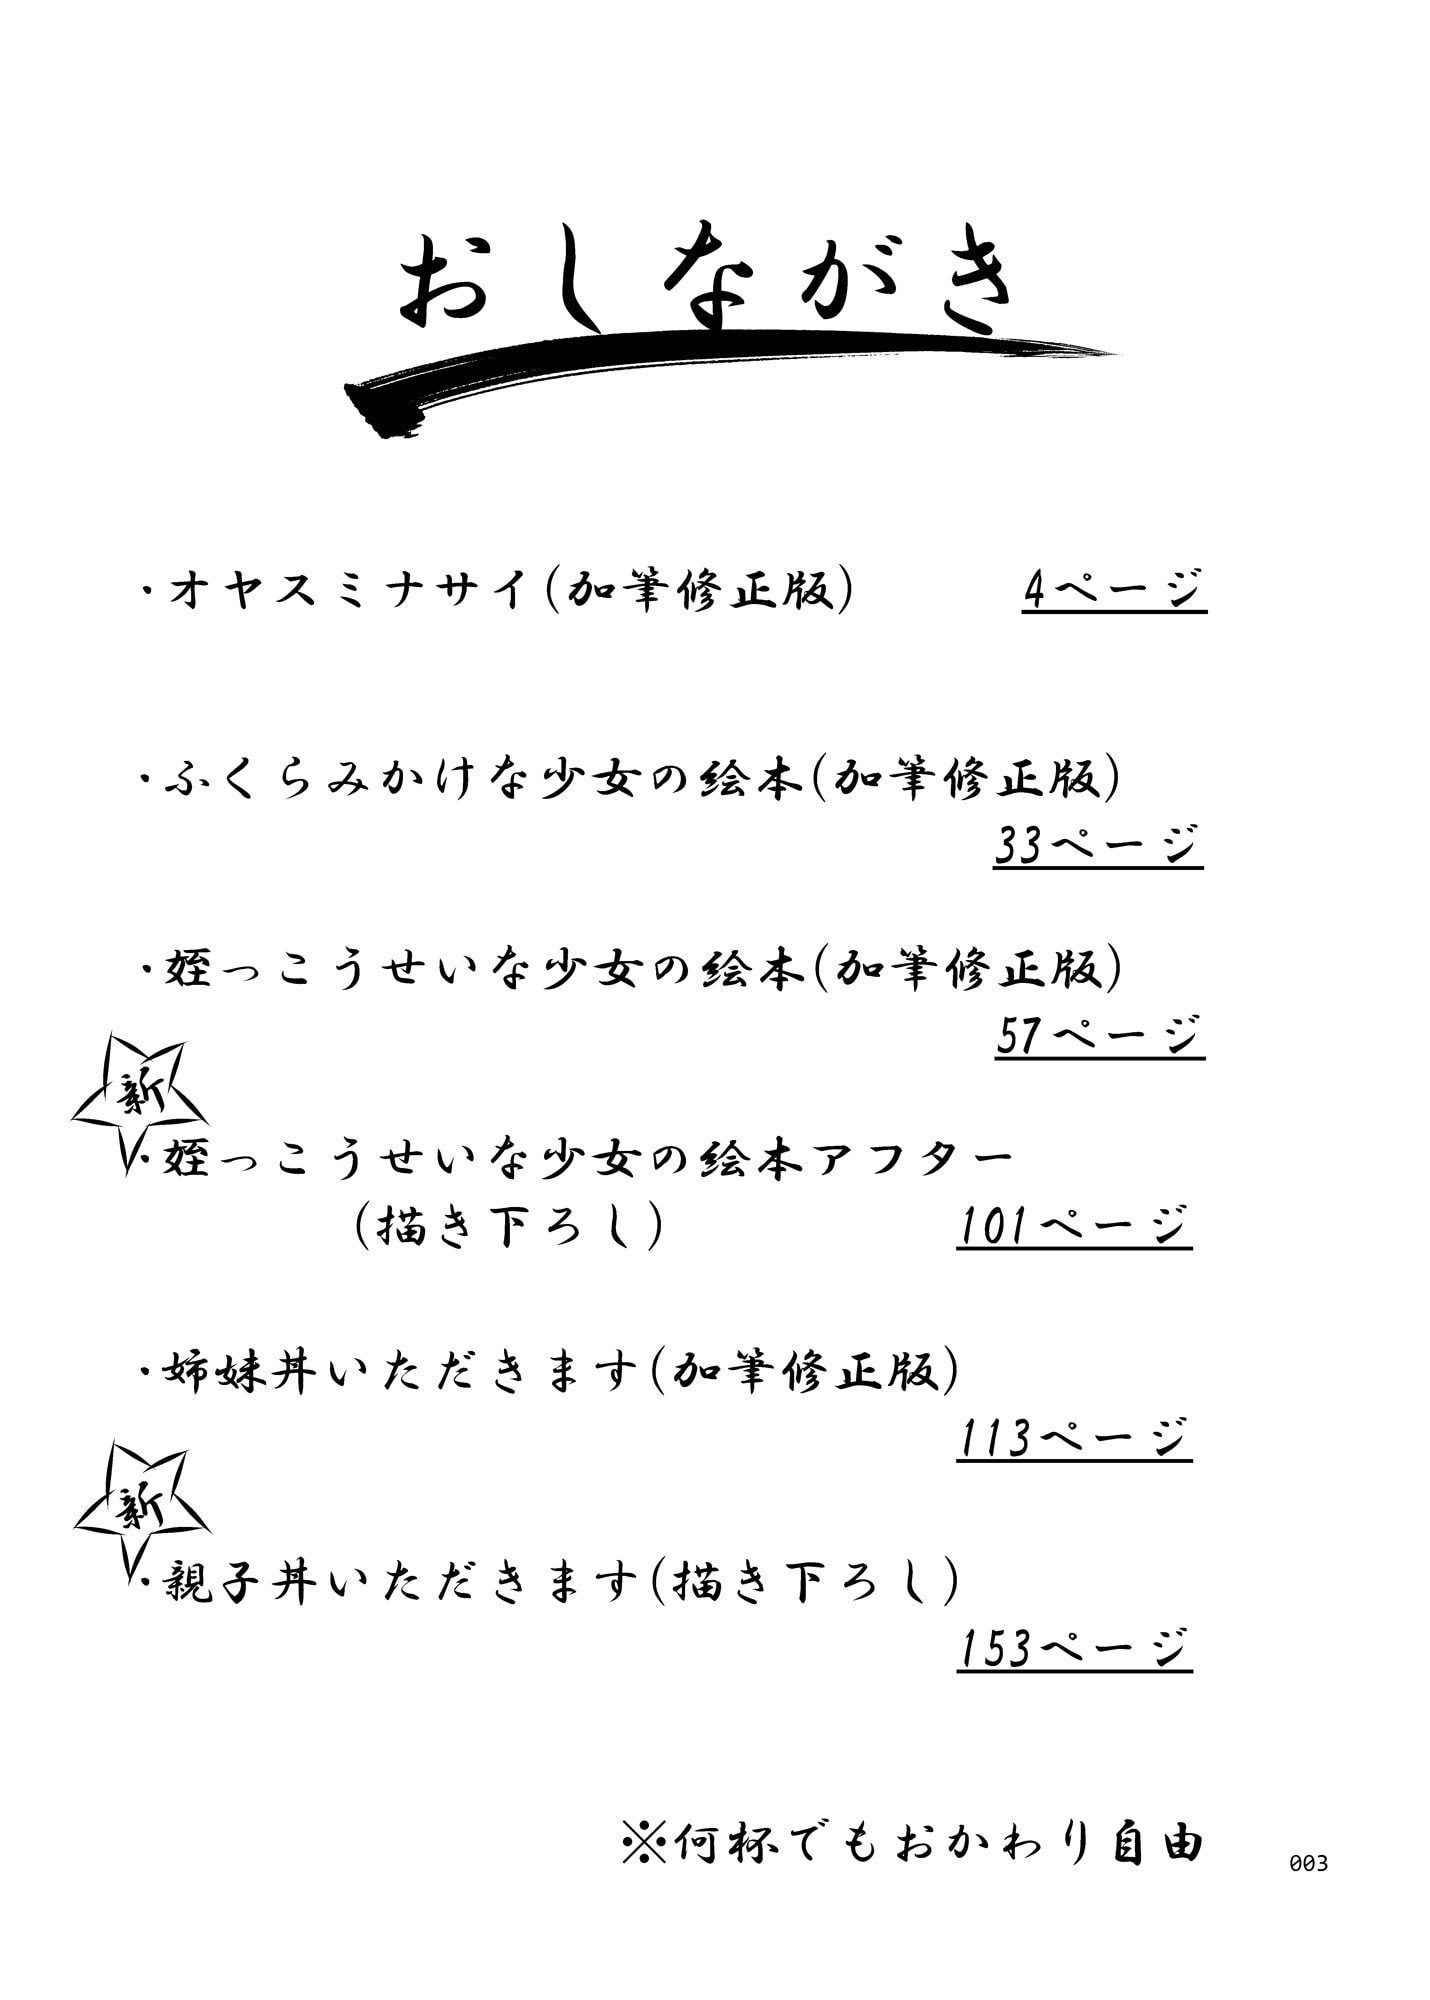 おしながき
・オヤスミナサイ(加筆修正版) 4ページ
・ふくらみかけな少女の絵本(加筆修正版)
33ページ
・姪っこうせいな少女の絵本(加筆修正版)
57ページ
新
・姪っこうせいな少女の絵本アフター
(描き下ろし) 101ページ
・姉妹丼いただきます(加筆修正版)
113ページ
新
・親子丼いただきます(描き下ろし)
153ページ
※何杯でもおかわり自由
003